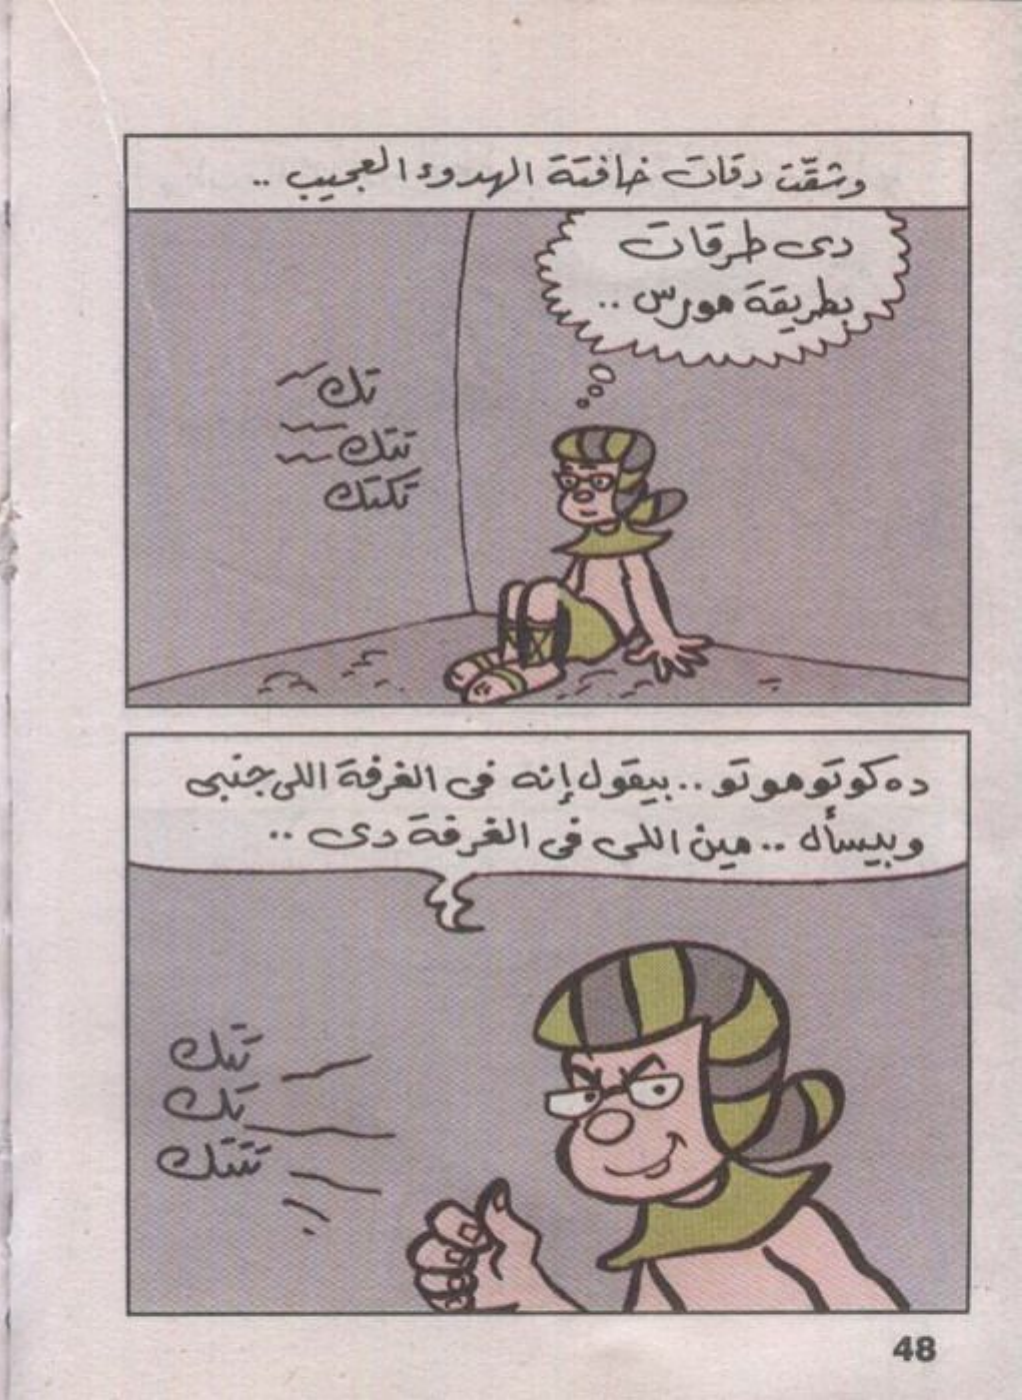 وشقّت دقات خافتة الهدوء العجيب ..
دى طرقات
بطريقة مورس ..
تك
تتك
تكتك
ده كوتوهوتو .. بيقول إنه فى الغرفة اللى جنبى
وبيسأل .. مين اللى فى الغرفة دى ..
تيك
تك
تتتك
48